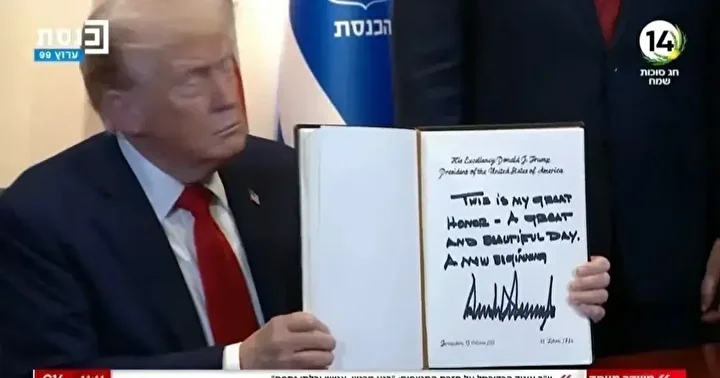 כנסת
ערוץ 99
הכנסת
14
חג סוכות
שמח
His Excellency Donald J. Trump
President of the United States of America
THIS IS MY GREAT
HONOR - A GREAT
AND BEAUTIFUL DAY.
A NEW BEGINNING
Jerusalem, 13 October 2025